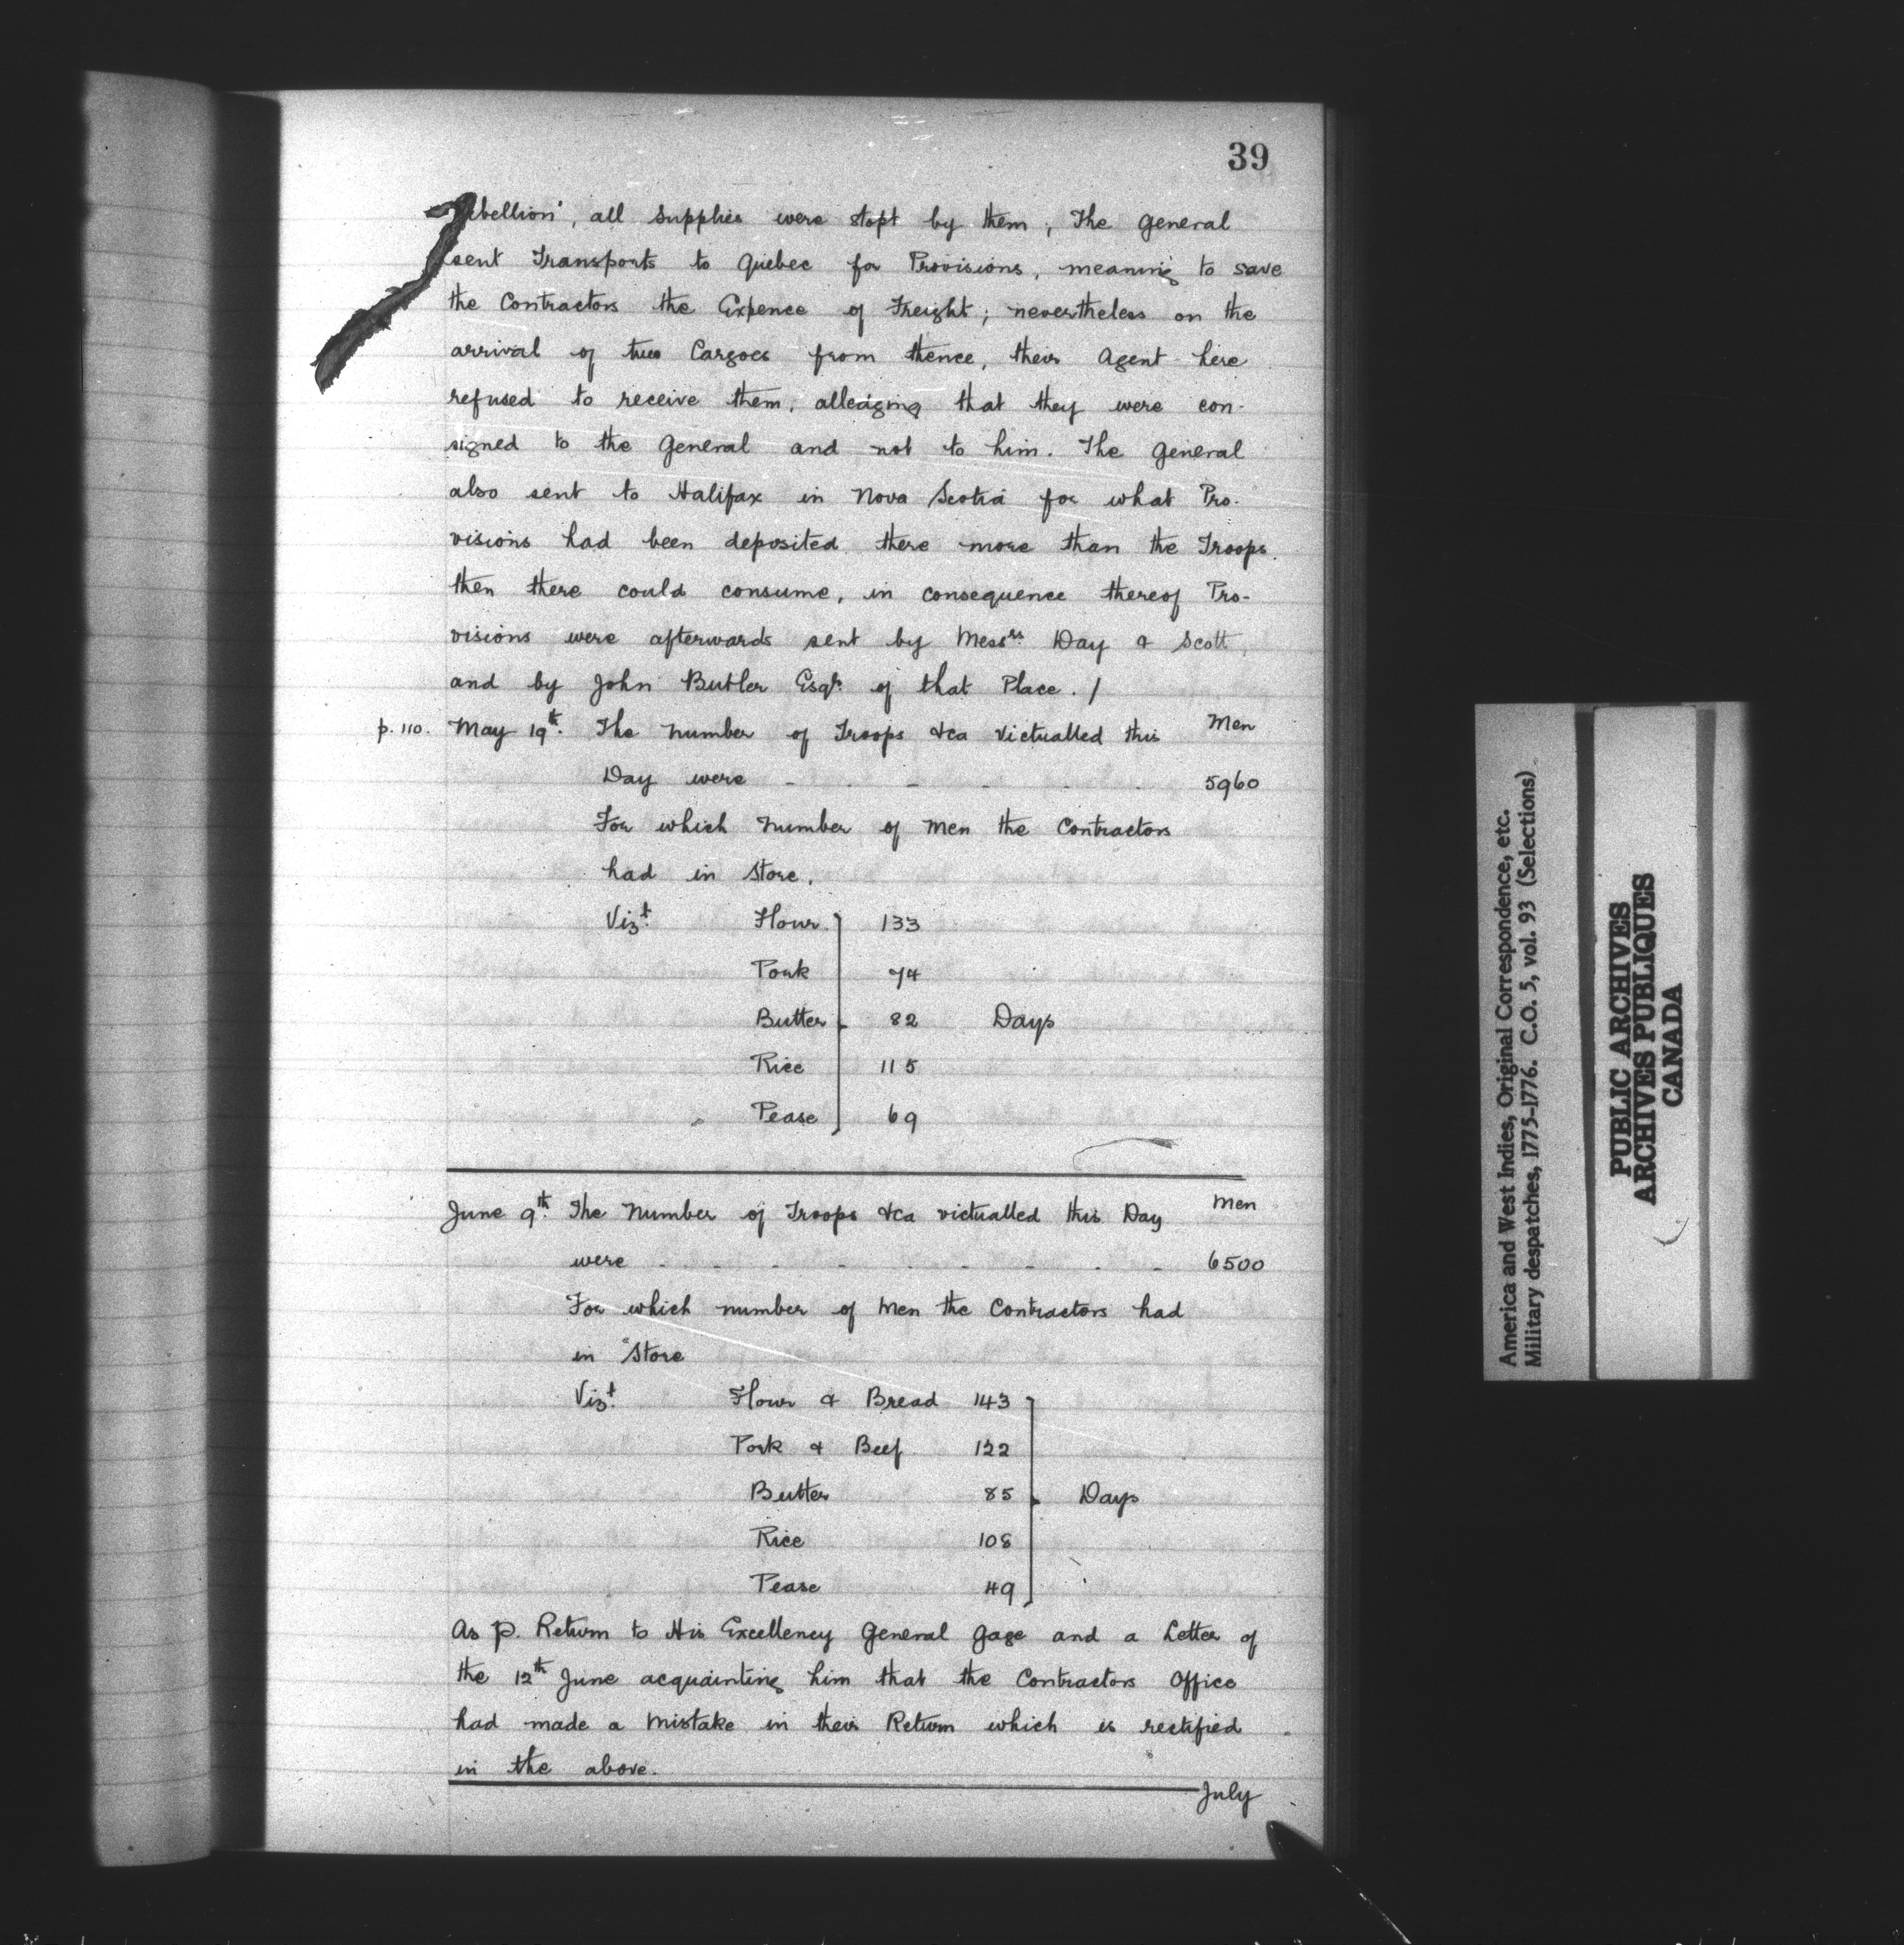 39
Rebellion, all supplies were stopt by them; The General
sent Transports to Quebec for Provisions, meaning to save
the Contractors the Expence of Freight; nevertheless on the
arrival of two Cargoes from thence, their Agent here
refused to receive them, alledging that they were con-
signed to the General and not to him. The General
also sent to Halifax in Nova Scotia for what Pro-
visions had been deposited there more than the Troops
then there could consume, in consequence thereof Pro-
visions were afterwards sent by Messrs. Day & Scott,
and by John Butler Esqr. of that Place. /
p. 110. May 19th. The Number of Troops &ca Victualled this Men
Day were - - - - - - 5960
For which Number of Men the Contractors
had in Store.
Vizt. Flour 133
Pork 74
Butter 82 Days
Rice 115
Pease 69
June 9th. The Number of Troops &ca victualled this Day Men
were - - - - - - - - 6500
For which number of Men the Contractors had
in Store
Vizt. Flour & Bread 143
Pork & Beef 122
Butter 85 Days
Rice 108
Pease 49
As p. Return to His Excellency General Gage and a Letter of
the 12th June acquainting him that the Contractors Office
had made a Mistake in their Return which is rectified
in the above.
July
America and West Indies, Original Correspondence, etc.
Military despatches, 1775-1776. C.O. 5, vol. 93 (Selections)
PUBLIC ARCHIVES
ARCHIVES PUBLIQUES
CANADA